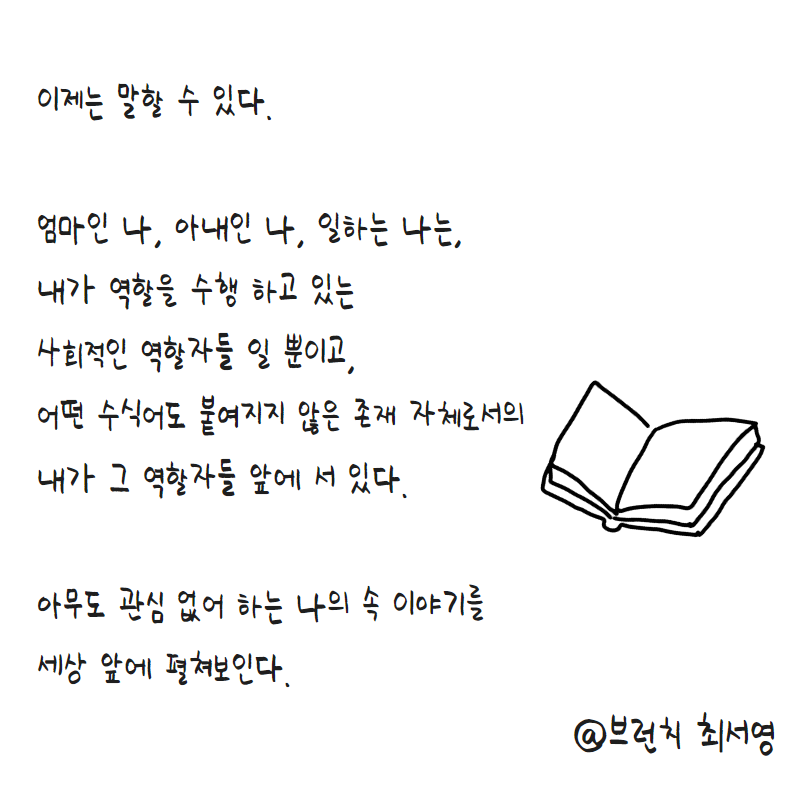 이제는 말할 수 있다.
엄마인 나, 아내인 나, 일하는 나는,
내가 역할을 수행 하고 있는
사회적인 역할자들 일 뿐이고,
어떤 수식어도 붙여지지 않은 존재 자체로서의
내가 그 역할자들 앞에 서 있다.
아무도 관심 없어 하는 나의 속 이야기를
세상 앞에 펼쳐보인다.
@브런치 최서영